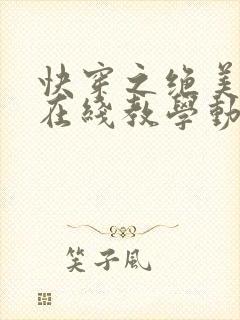 快穿之绝美
在线教學動
笑子风